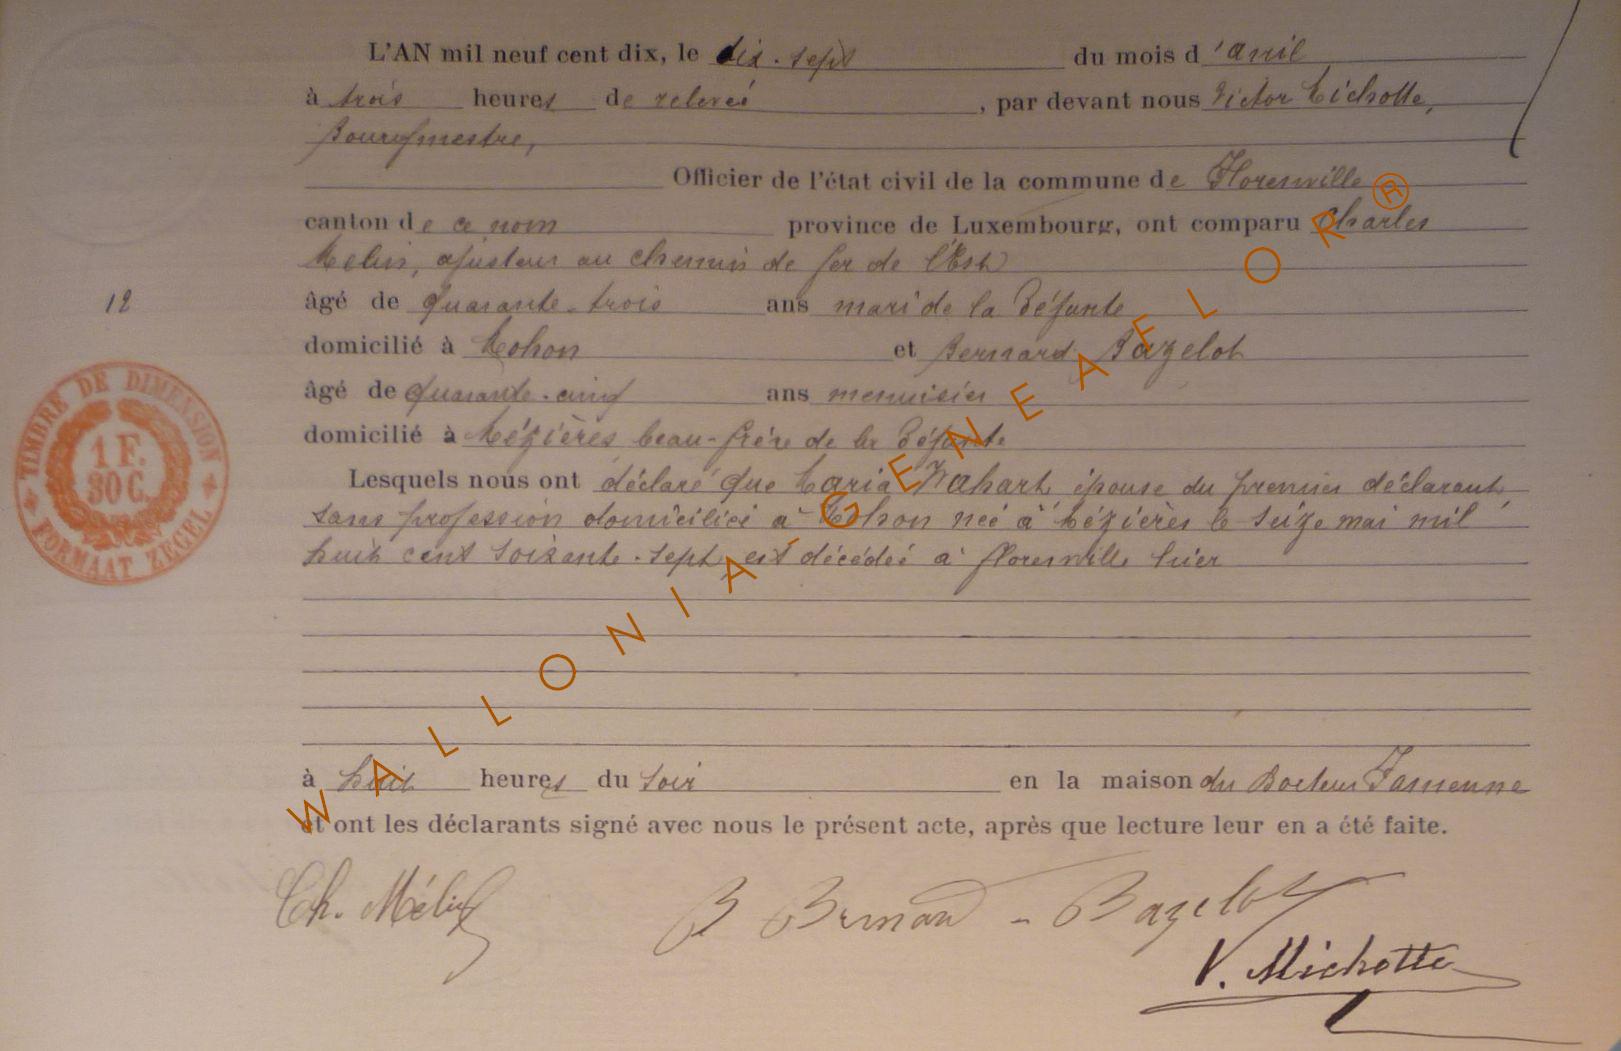 L'AN mil neuf cent dix, le dix-sept du mois d'avril
à trois heures de relevée, par devant nous Victor Michotte,
Bourgmestre,
Officier de l'état civil de la commune de Florenville
canton de ce nom province de Luxembourg, ont comparu Charles
Melin, ajusteur au chemin de fer de l'Est
12
âgé de quarante-trois ans mari de la défunte
domicilié à Mohon et Bernard Bazelot
âgé de quarante-cinq ans menuisier
domicilié à Mézières beau-frère de la défunte
Lesquels nous ont déclaré que Maria Wahart épouse du premier déclarant,
sans profession domiciliée à Mohon née à Mézières le seize mai mil
huit cent soixante-sept, est décédée à florenville hier
à huit heures du soir en la maison du Docteur Famenne
et ont les déclarants signé avec nous le présent acte, après que lecture leur en a été faite.
Ch. Mélin
B Bernard - Bazelot
V. Michotte
TIMBRE DE DIMENSION
1 F.
30 C.
FORMAAT ZEGEL
WALLONIA-GENEAFLOR®